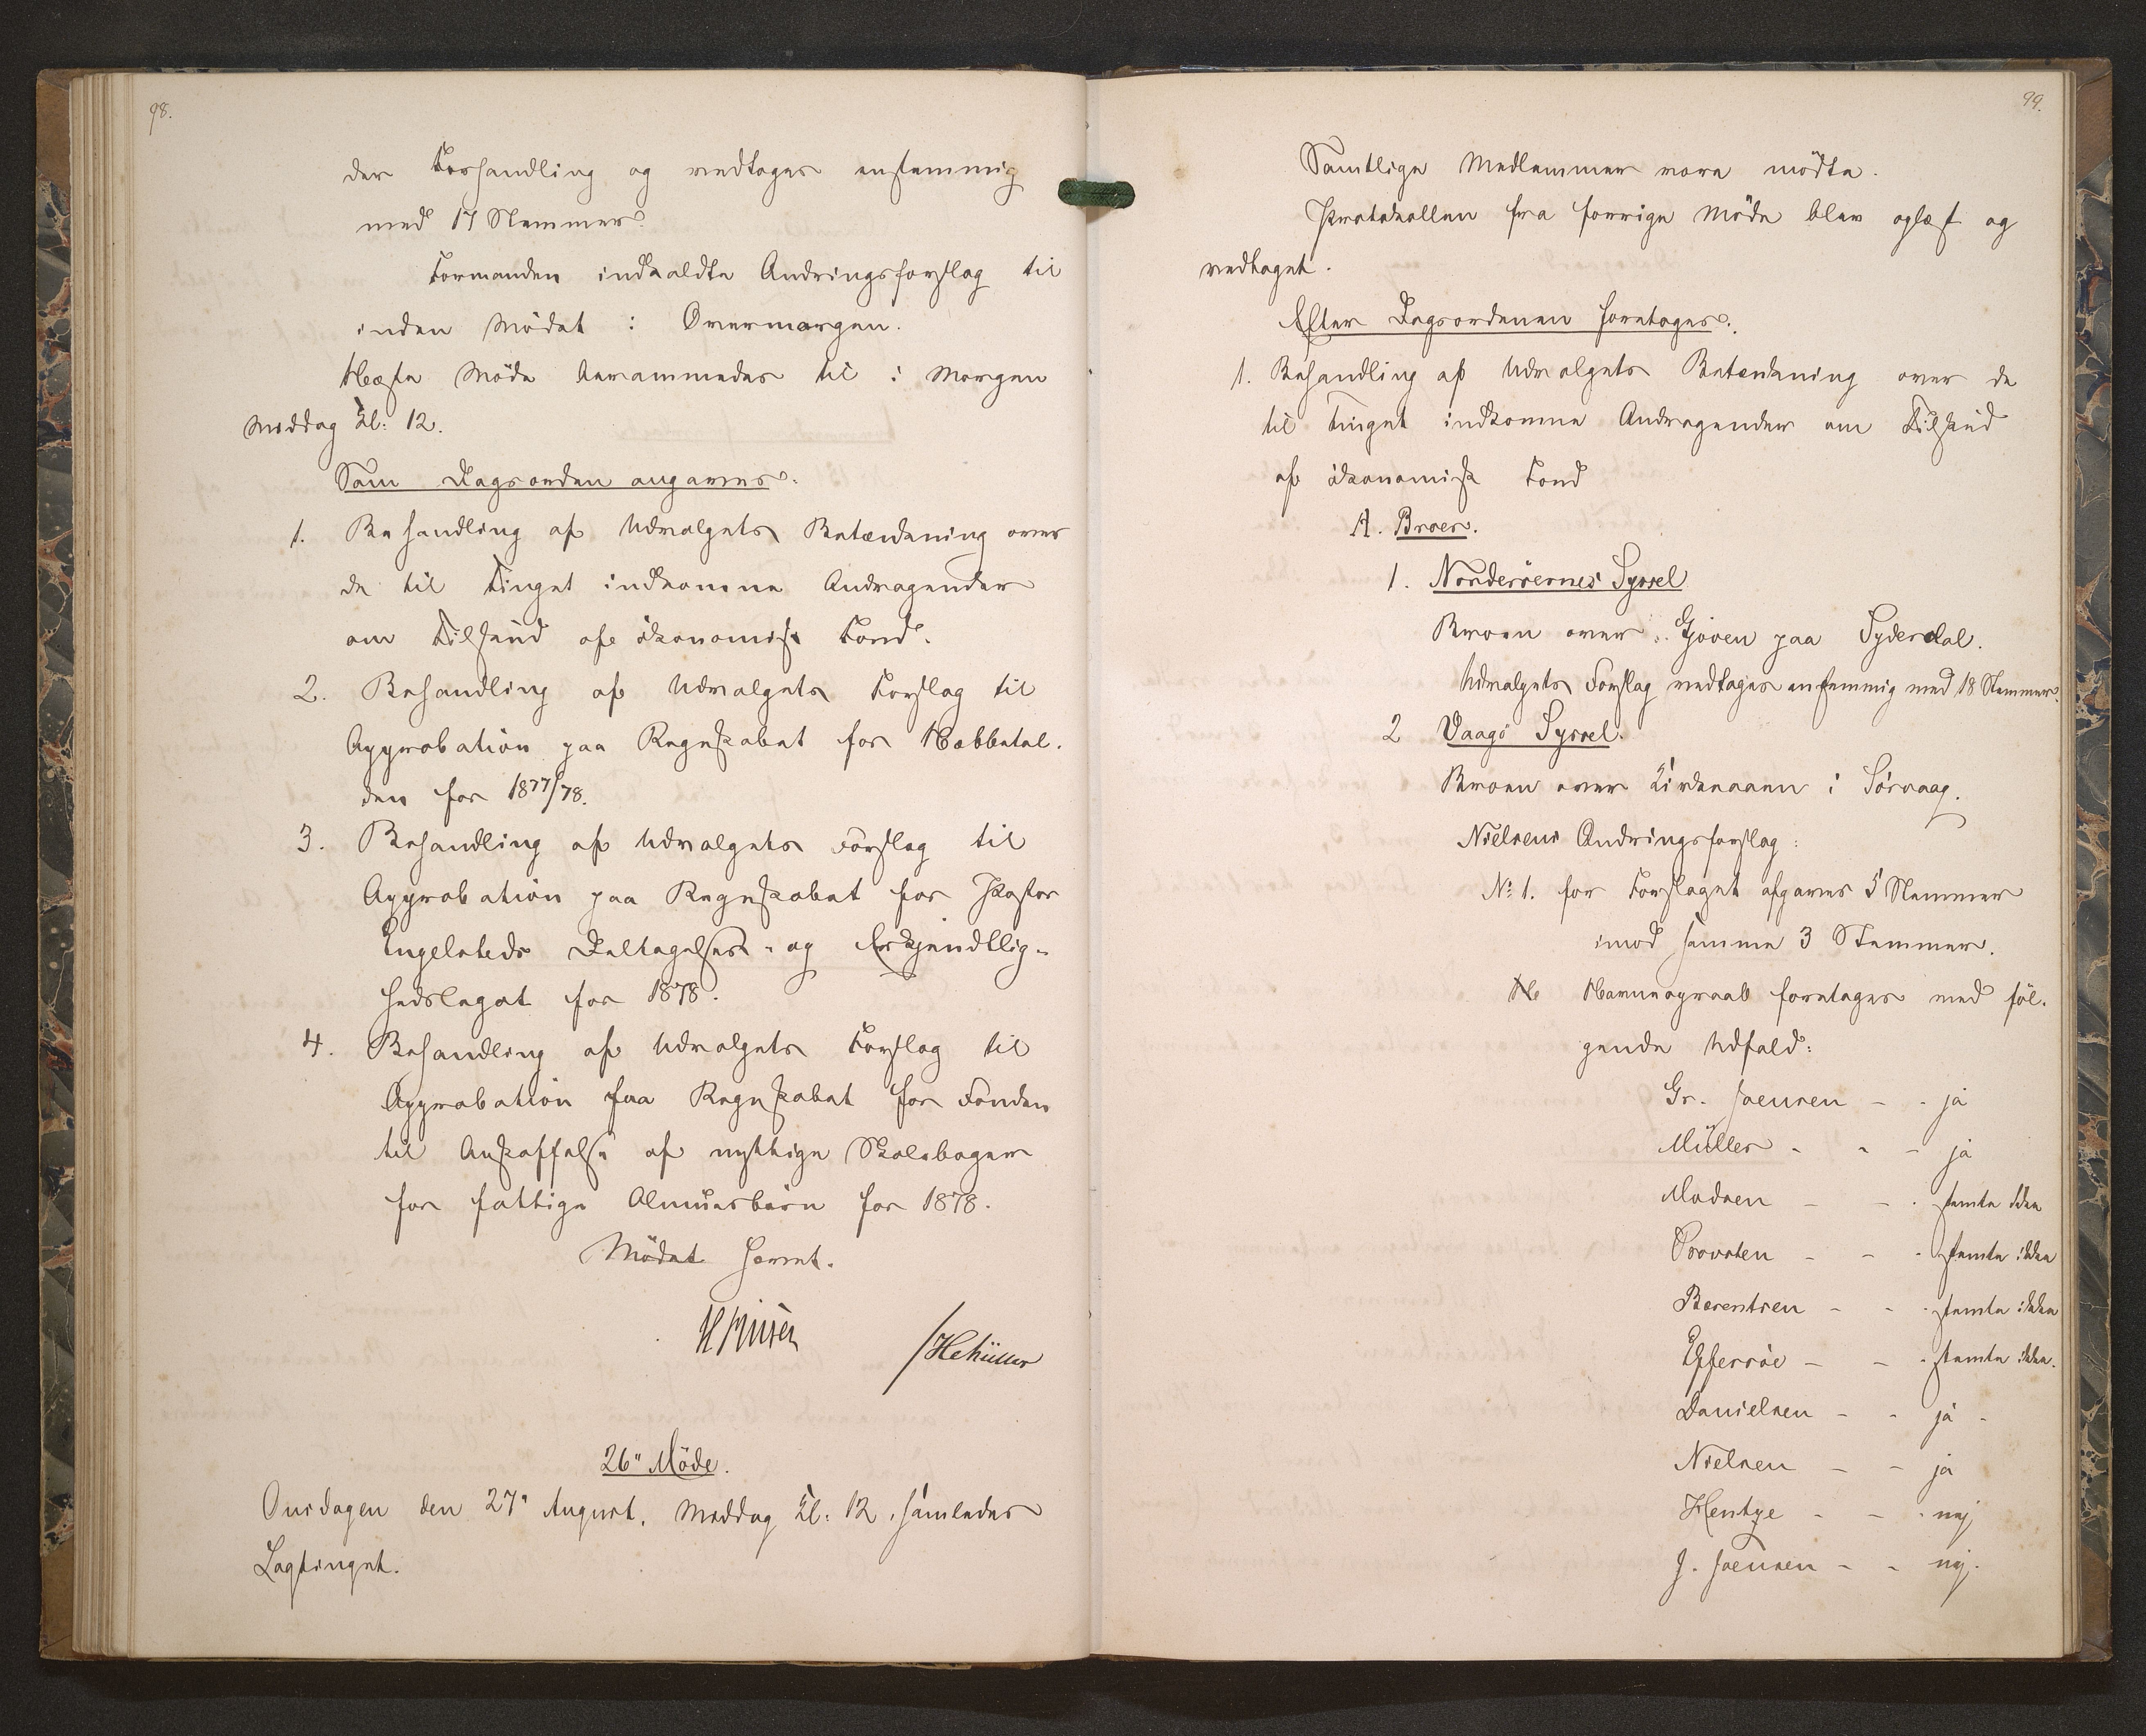 98.
der Forhandling og vedtoges enstemmig
med 17 Stemmer.
Formanden indkaldte Ændringsforslag til
inden Mödet i Overmorgen.
Næste Möde berammedes til i Morgen
Middag Kl. 12.
Som Dagsorden angaves:
1. Behandling af Udvalgets Betænkning over
de til Tinget indkomne Andragender
om Tilskud af ökonomisk Fond.
2. Behandling af Udvalgets Forslag til
Approbation paa Regnskabet for Næbbetol-
den for 1877/78.
3. Behandling af Udvalgets Forslag til
Approbation paa Regnskabet for Pastor
Engelsteds Deltagelses- og Erkjendtlig-
hedslegat for 1878.
4. Behandling af Udvalgets Forslag til
Approbation paa Regnskabet for Fonden
til Anskaffelse af nyttige Skoleboger
for fattige Almuesbörn for 1878.
Mödet hævet.
HMüller
26" Möde.
Onsdagen den 27" August, Middag Kl: 12, samledes
Lagtinget.
99.
Samtlige Medlemmer vare mödte.
Protokollen fra forrige Möde blev oplæst og
vedtaget.
Efter Dagsordenen foretoges:
1. Behandling af Udvalgets Betænkning over de
til Tinget indkomne Andragender om Tilskud
af ökonomisk Fond
A. Broer.
1. Norderöernes Syssel
Broen over Gjöven paa Syderdal.
Udvalgets Forslag vedtoges enstemmig med 18 Stemmer.
2 Vaagö Syssel.
Broen over Kirkeaaen i Sörvaag.
Nielsens Ændringsforslag:
No 1. for Forslaget afgaves 5 Stemmer
imod samme 3 Stemmer.
Ne Navneopraab foretoges med föl-
gende Udfald:
Gr. Joensen - - ja
Müller - - - ja
Madsen - - - stemte ikke
Provsten - - - stemte ikke
Berentsen - - - stemte ikke
Effersöe - - - stemte ikke.
Danielsen - - ja -
Nielsen - - ja
Hentze - - - nej
J. Joensen - - nej.